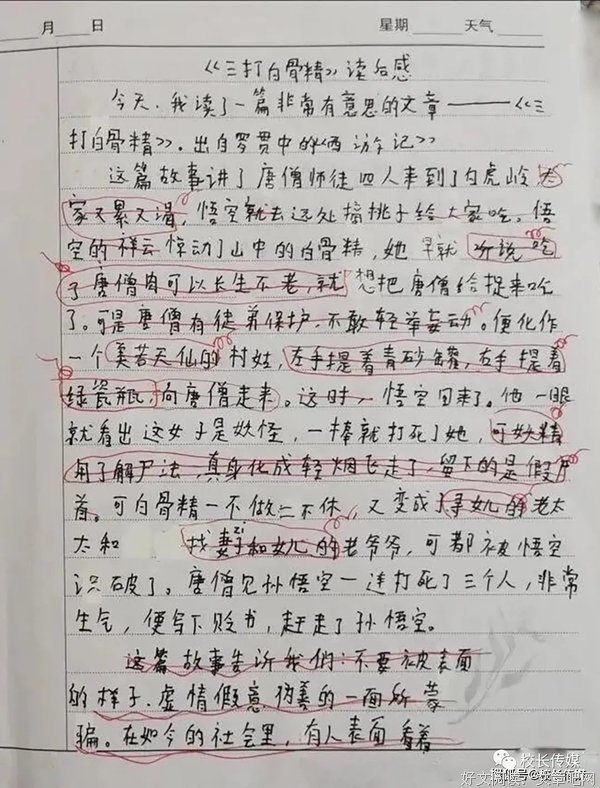 月 日 星期 天气
《三打白骨精》读后感
今天,我读了一篇非常有意思的文章——《三
打白骨精》。出自罗贯中的《西游记》
这篇故事讲了唐僧师徒四人来到了白虎岭大
家又累又渴,悟空就去远处摘桃子给大家吃。悟
空的祥云惊动了山中的白骨精,她早就听说吃
了唐僧肉可以长生不老,就想把唐僧给捉来吃
了。可是唐僧有徒弟保护,不敢轻举妄动。便化作
一个美若天仙的村姑,左手提着青砂罐,右手提着
绿瓷瓶,向唐僧走来。这时,悟空回来了。他一眼
就看出这女子是妖怪,一棒就打死了她,可妖精
用了解尸法,真身化成轻烟飞走了,留下的是假尸
首。可白骨精一不做二不休,又变成了寻女儿的老太
太和 找妻子和女儿的老爷爷,可都被悟空
识破了。唐僧见孙悟空一连打死了三个人,非常
生气,便写下贬书,赶走了孙悟空。
这篇故事告诉我们:不要被表面
的样子、虚情假意伪善的一面所蒙
骗。在如今的社会里,有人表面看着
校长传媒